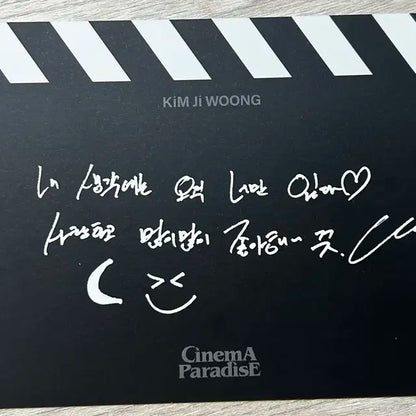 KiM Ji WOONG
내 생각에는 오직 너만 있다♡
사랑하고 많이많이 좋아해~ 꼭.
CinemA
ParadisE